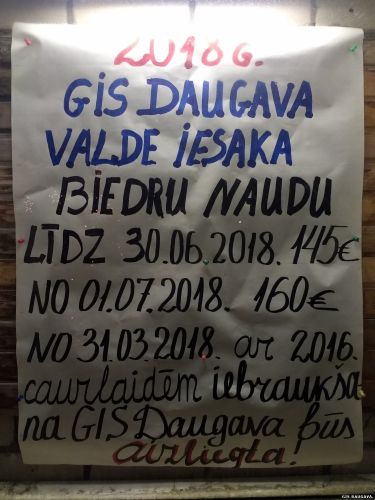 2018 G.
GIS DAUGAVA
VALDE IESAKA
BIEDRU NAUDU
LĪDZ 30.06.2018. 145€
NO 01.07.2018. 160€
NO 31.03.2018. ar 2016.
caurlaidēm iebraukša
na GIS Daugava būs
aizliegta!
GIS DAUGAVA